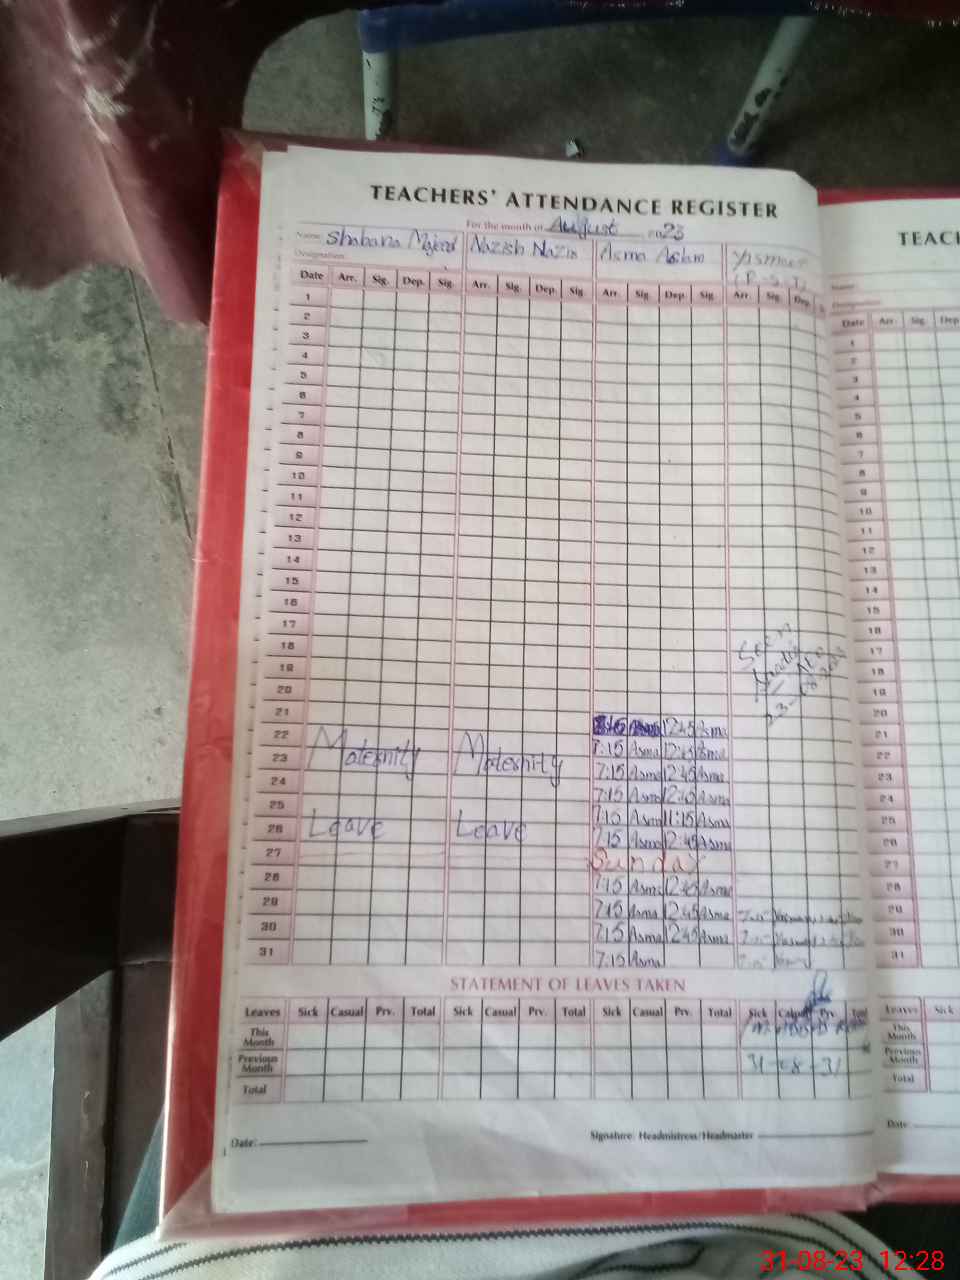 TEACHERS' ATTENDANCE REGISTER
For the month of August 2023
Name: Shabana Majeed Nazish Nazir Asma Aslam
Designation: (P.S.T)
Date Arr. Sig. Dep. Sig. Arr. Sig. Dep. Sig. Arr. Sig. Dep. Sig. Arr. Sig. Dep.
1
2
3
4
5
6
7
8
9
10
11
12
13
14
15
16
17
18 Seen
19
20
21 12:45 Asma
22 7:15 Asma 12:45 Asma
23 Maternity Maternity 7:15 Asma 12:45 Asma
24 7:15 Asma 12:45 Asma
25 7:15 Asma 11:15 Asma
26 Leave Leave 7:15 Asma 12:45 Asma
27 Sunday
28 7:15 Asma 12:45 Asma
29 7:15 Asma 12:45 Asma
30 7:15 Asma 12:45 Asma
31 7:15 Asma
STATEMENT OF LEAVES TAKEN
Leaves Sick Casual Prv. Total Sick Casual Prv. Total Sick Casual Prv. Total Sick Casual Prv. Total
This Month
Previous Month 31-08-31
Total
Date: Signature: Headmistress/Headmaster
TEACH
Name:
Designation:
Date Arr. Sig. Dep
1
2
3
4
5
6
7
8
9
10
11
12
13
14
15
16
17
18
19
20
21
22
23
24
25
26
27
28
29
30
31
Leaves Sick
This Month
Previous Month
Total
Date
31-08-23 12:28